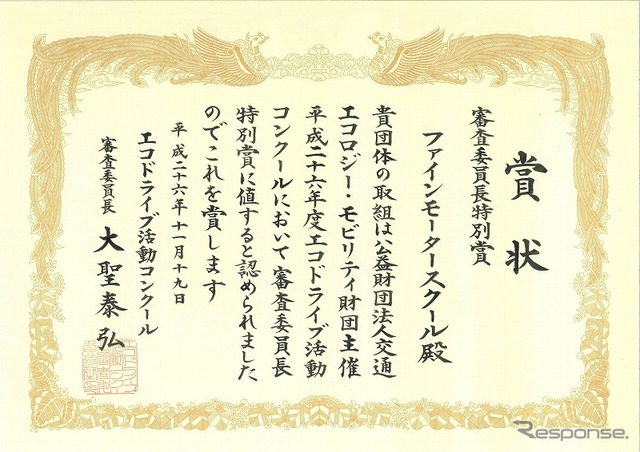 賞状
審査委員長特別賞
ファインモータースクール殿
貴団体の取組は公益財団法人交通
エコロジー・モビリティ財団主催
平成二十六年度エコドライブ活動
コンクールにおいて審査委員長
特別賞に値すると認められました
のでこれを賞します
平成二十六年十一月十九日
エコドライブ活動コンクール
審査委員長 大聖泰弘
Response.